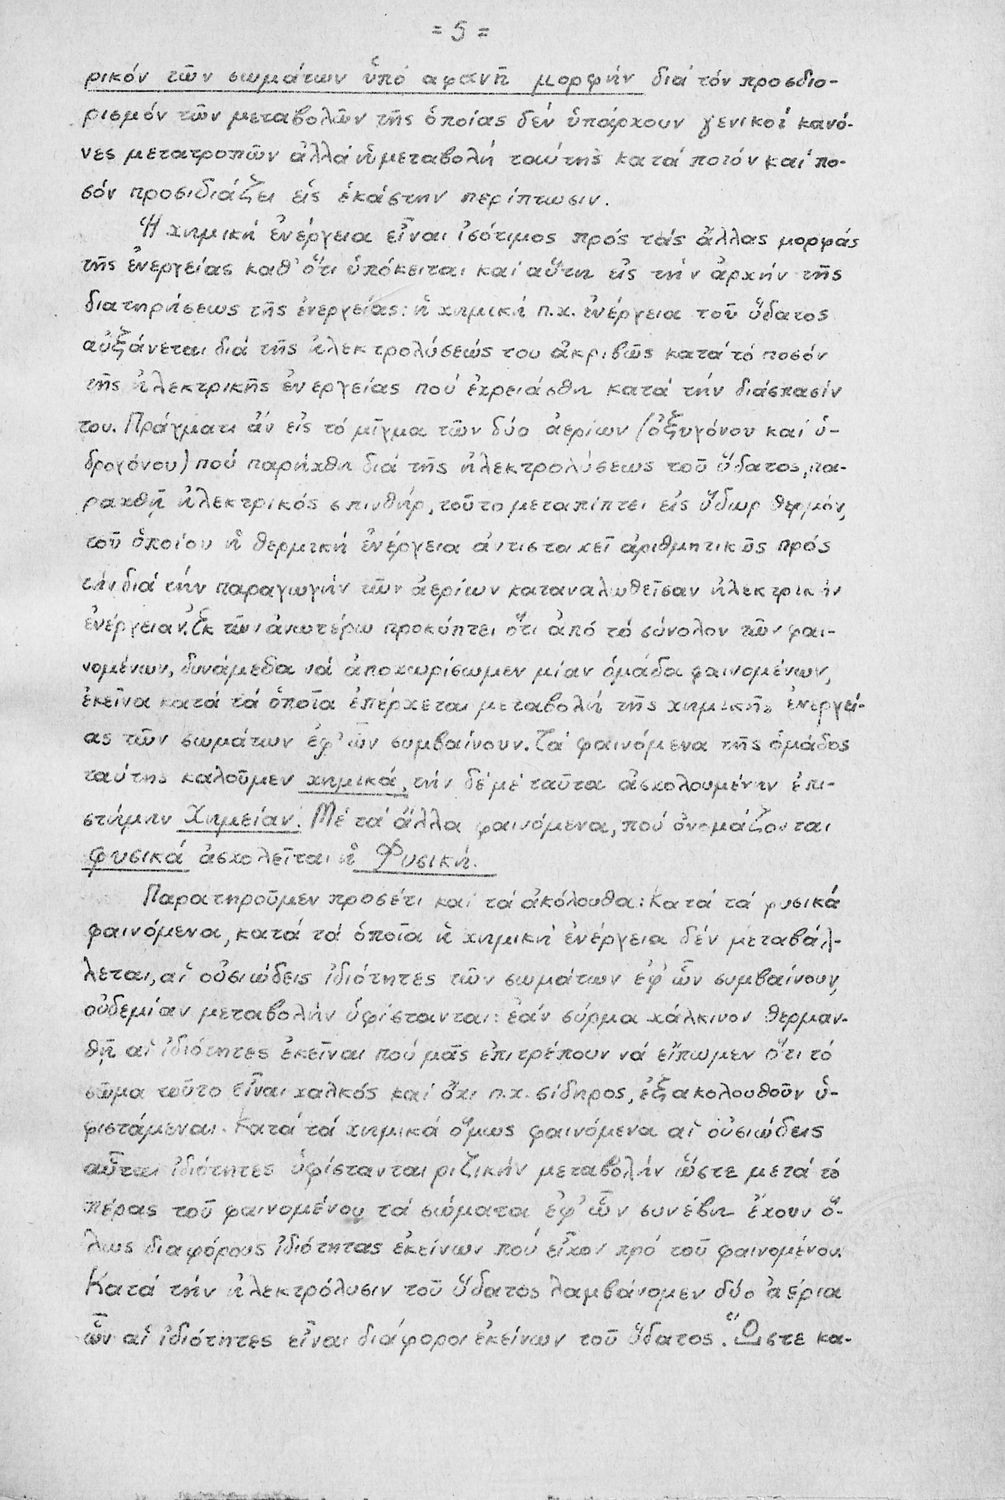 = 5 =
ρικόν τῶν σωμάτων ὑπό αφανῆ μορφήν διά τόν προσδιο-
ρισμόν τῶν μεταβολῶν τῆς ὁποίας δέν ὑπάρχουν γενικοί κανό-
νες μετατροπῶν ἀλλά ἡ μεταβολή ταύτης κατά ποιόν καί πο-
σόν προσιδιάζει εἰς ἑκάστην περίπτωσιν.
Ἡ χημική ἐνέργεια εἶναι ἰσότιμος πρός τάς ἄλλας μορφάς
τῆς ἐνεργείας καθ' ὅτι ὑπόκειται καί αὕτη εἰς τήν ἀρχήν τῆς
διατηρήσεως τῆς ἐνεργείας: ἡ χημική π.χ. ἐνέργεια τοῦ ὕδατος
αὐξάνεται διά τῆς ἠλεκτρολύσεώς του ἀκριβῶς κατά τό ποσόν
τῆς ἠλεκτρικῆς ἐνεργείας πού ἐχρειάσθη κατά τήν διάσπασίν
του. Πράγματι ἄν εἰς τό μῖγμα τῶν δύο ἀερίων (ὀξυγόνου καί ὑ-
δρογόνου) πού παρήχθη διά τῆς ἠλεκτρολύσεως τοῦ ὕδατος, πα-
ραχθῇ ἠλεκτρικός σπινθήρ, τοῦτο μεταπίπτει εἰς ὕδωρ θερμόν,
τοῦ ὁποίου ἡ θερμική ἐνέργεια ἀντιστοιχεῖ ἀριθμητικῶς πρός
τήν διά τήν παραγωγήν τῶν ἀερίων καταναλωθεῖσαν ἠλεκτρικήν
ἐνέργειαν. Ἐκ τῶν ἀνωτέρω προκύπτει ὅτι ἀπό τό σύνολον τῶν φαι-
νομένων, δυνάμεδα νά ἀποχωρίσωμεν μίαν ὁμάδα φαινομένων,
ἐκεῖνα κατά τά ὁποῖα ἐπέρχεται μεταβολή τῆς χημικῆς ἐνεργεί-
ας τῶν σωμάτων ἐφ' ὧν συμβαίνουν. Τά φαινόμενα τῆς ὁμάδος
ταύτης καλοῦμεν χημικά, τήν δέ μέ ταῦτα ἀσχολουμένην ἐπι-
στήμην Χημείαν. Μέ τά ἄλλα φαινόμενα, πού ὀνομάζονται
φυσικά ἀσχολεῖται ἡ Φυσική.
Παρατηροῦμεν προσέτι καί τά ἀκόλουθα: Κατά τά φυσικά
φαινόμενα, κατά τά ὁποῖα ἡ χημική ἐνέργεια δέν μεταβάλ-
λεται, αἱ οὐσιώδεις ἰδιότητες τῶν σωμάτων ἐφ' ὧν συμβαίνουν,
οὐδεμίαν μεταβολήν ὑφίστανται: ἐάν σύρμα χάλκινον θερμαν-
θῇ αἱ ἰδιότητες ἐκεῖναι πού μᾶς ἐπιτρέπουν νά εἴπωμεν ὅτι τό
σῶμα τοῦτο εἶναι χαλκός καί ὄχι π.χ. σίδηρος, ἐξακολουθοῦν ὑ-
φιστάμεναι. Κατά τά χημικά ὅμως φαινόμενα αἱ οὐσιώδεις
αὗται ἰδιότητες ὑφίστανται ριζικήν μεταβολήν ὥστε μετά τό
πέρας τοῦ φαινομένου τά σώματα ἐφ' ὧν συνέβη ἔχουν ὅ-
λως διαφόρους ἰδιότητας ἐκείνων πού εἶχον πρό τοῦ φαινομένου.
Κατά τήν ἠλεκτρόλυσιν τοῦ ὕδατος λαμβάνομεν δύο ἀέρια
ὧν αἱ ἰδιότητες εἶναι διάφοροι ἐκείνων τοῦ ὕδατος. Ὥστε κα-